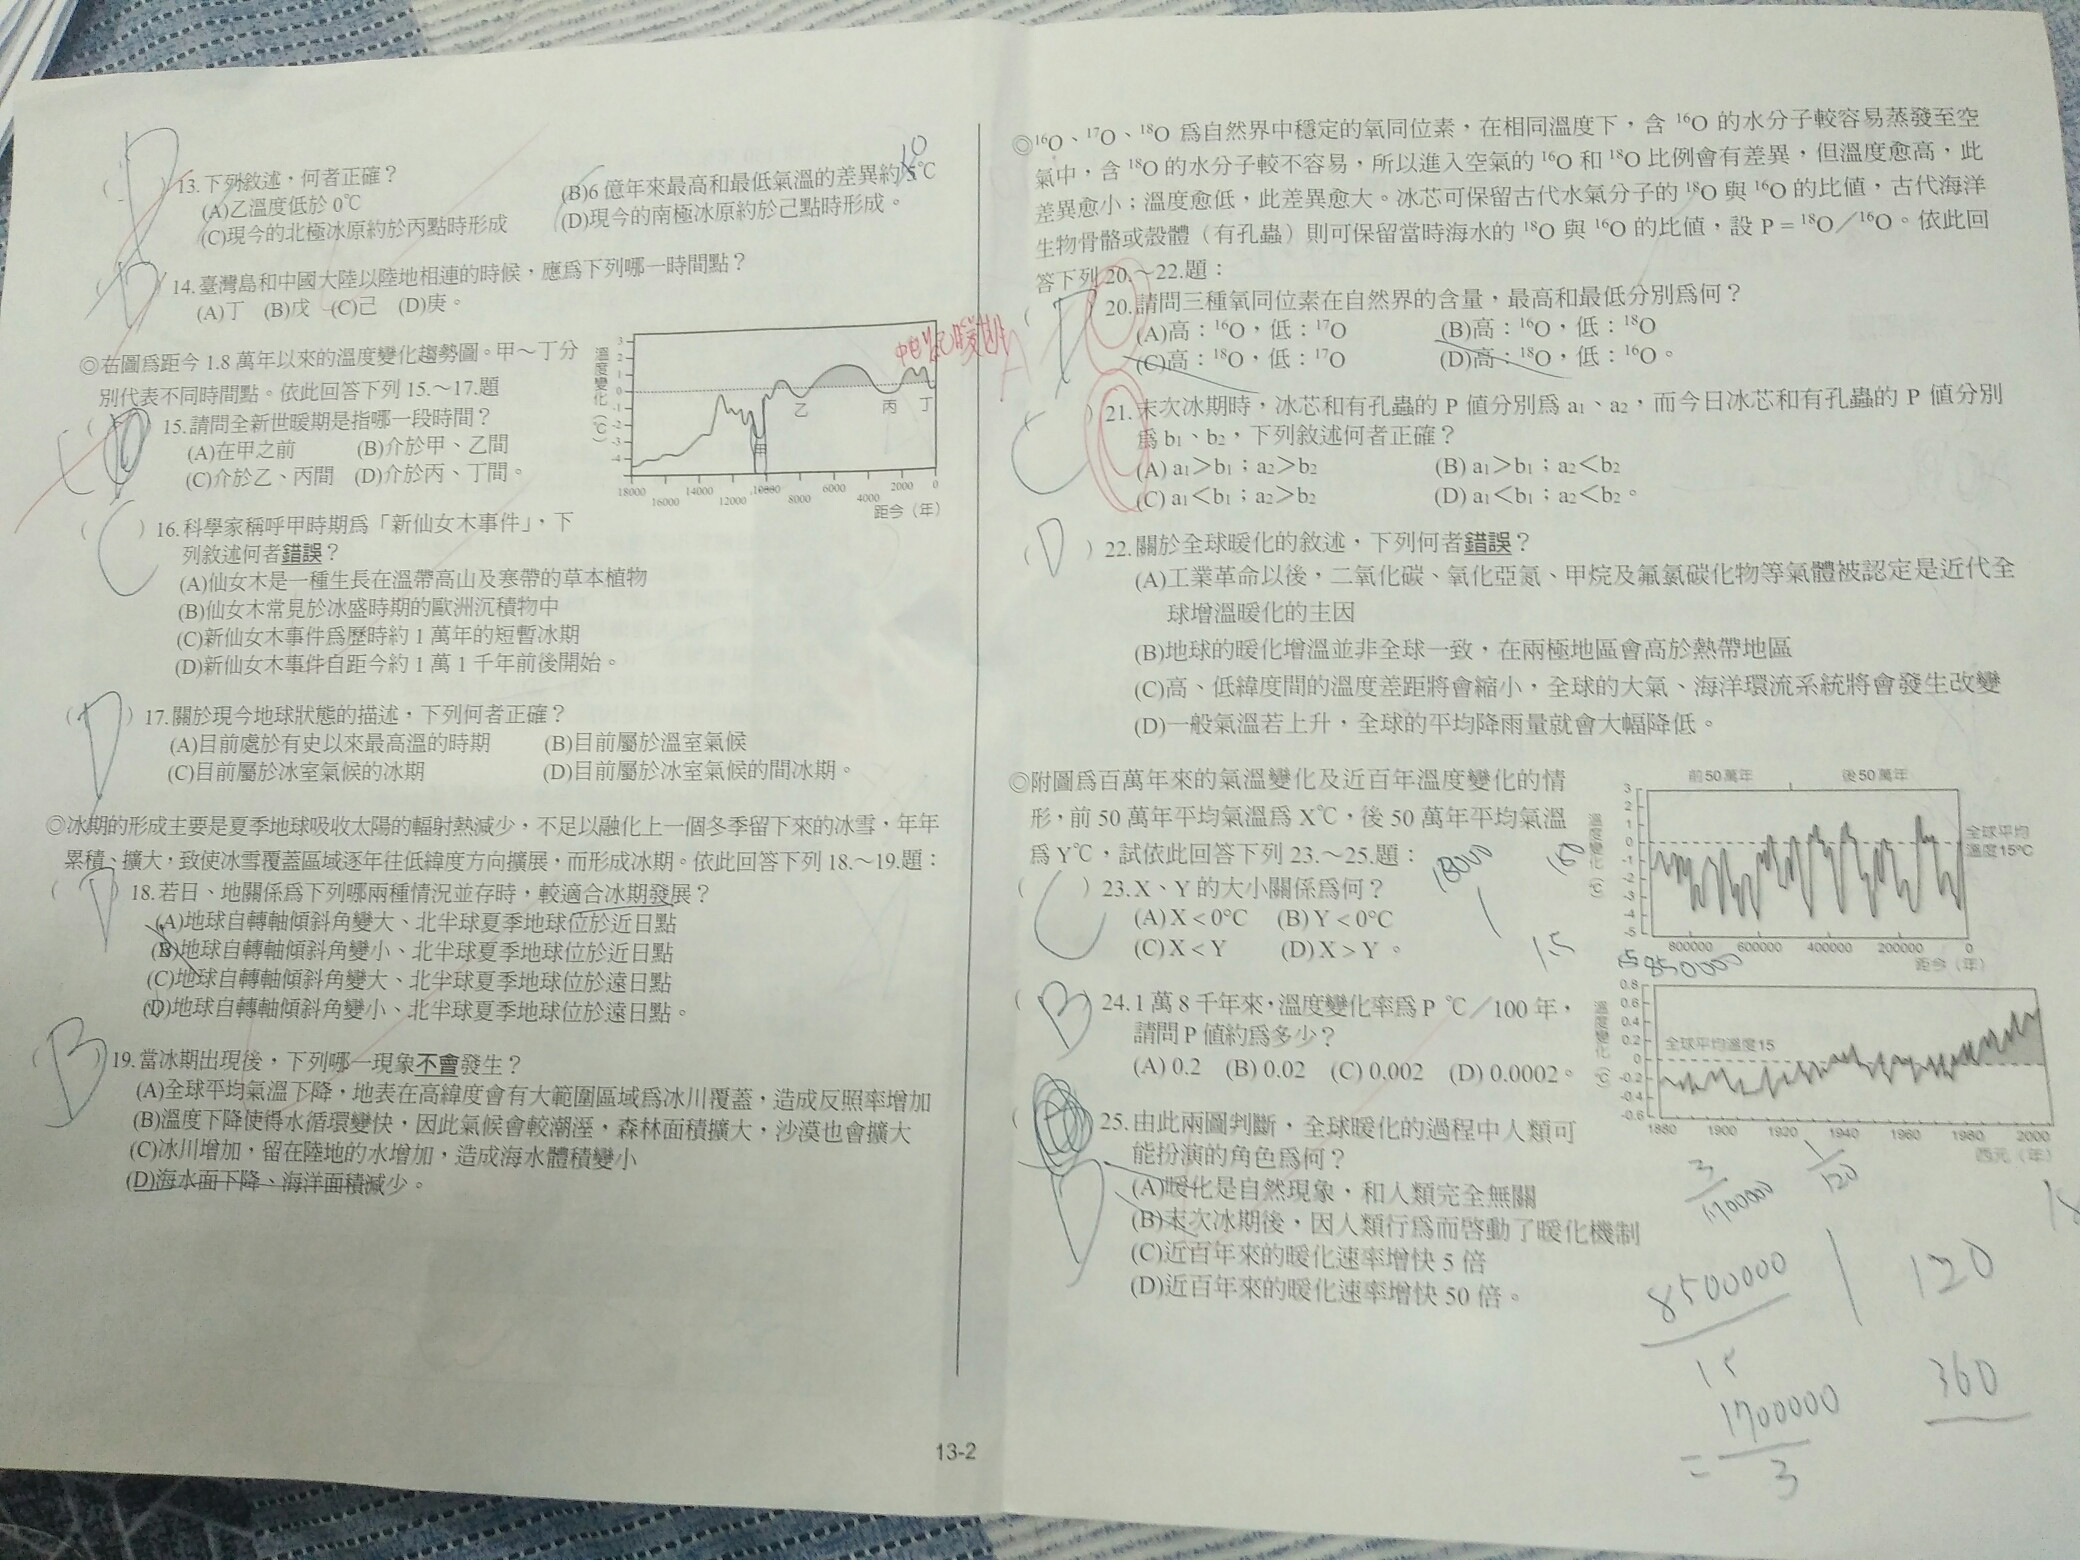 13.下列敘述，何者正確？
(A)乙溫度低於 0℃ (B)6 億年來最高和最低氣溫的差異約 5℃
10
(C)現今的北極冰原約於丙點時形成 (D)現今的南極冰原約於己點時形成。
D
14.臺灣島和中國大陸以陸地相連的時候，應為下列哪一時間點？
(A)丁 (B)戊 (C)己 (D)庚。
D
◎右圖為距今 1.8 萬年以來的溫度變化趨勢圖。甲～丁分
別代表不同時間點。依此回答下列 15.～17.題
( ) 15.請問全新世暖期是指哪一段時間？
(A)在甲之前 (B)介於甲、乙間
(C)介於乙、丙間 (D)介於丙、丁間。
溫度變化(℃)
3
2
1
0
-1
-2
-3
-4
甲
乙
丙
丁
18000 16000 14000 12000 10000 8000 6000 4000 2000 0
距今（年）
( C ) 16.科學家稱呼甲時期為「新仙女木事件」，下
列敘述何者錯誤？
(A)仙女木是一種生長在溫帶高山及寒帶的草本植物
(B)仙女木常見於冰盛時期的歐洲沉積物中
(C)新仙女木事件為歷時約 1 萬年的短暫冰期
(D)新仙女木事件自距今約 1 萬 1 千年前後開始。
( D ) 17.關於現今地球狀態的描述，下列何者正確？
(A)目前處於有史以來最高溫的時期 (B)目前屬於溫室氣候
(C)目前屬於冰室氣候的冰期 (D)目前屬於冰室氣候的間冰期。
◎冰期的形成主要是夏季地球吸收太陽的輻射熱減少，不足以融化上一個冬季留下來的冰雪，年年
累積、擴大，致使冰雪覆蓋區域逐年往低緯度方向擴展，而形成冰期。依此回答下列 18.～19.題：
( D ) 18.若日、地關係為下列哪兩種情況並存時，較適合冰期發展？
(A)地球自轉軸傾斜角變大、北半球夏季地球位於近日點
(B)地球自轉軸傾斜角變小、北半球夏季地球位於近日點
(C)地球自轉軸傾斜角變大、北半球夏季地球位於遠日點
(D)地球自轉軸傾斜角變小、北半球夏季地球位於遠日點。
( B ) 19.當冰期出現後，下列哪一現象不會發生？
(A)全球平均氣溫下降，地表在高緯度會有大範圍區域為冰川覆蓋，造成反照率增加
(B)溫度下降使得水循環變快，因此氣候會較潮溼，森林面積擴大，沙漠也會擴大
(C)冰川增加，留在陸地的水增加，造成海水體積變小
(D)海水面下降、海洋面積減少。
◎¹⁶O、¹⁷O、¹⁸O 為自然界中穩定的氧同位素，在相同溫度下，含 ¹⁶O 的水分子較容易蒸發至空
氣中，含 ¹⁸O 的水分子較不容易，所以進入空氣的 ¹⁶O 和 ¹⁸O 比例會有差異，但溫度愈高，此
差異愈小；溫度愈低，此差異愈大。冰芯可保留古代水氣分子的 ¹⁸O 與 ¹⁶O 的比值，古代海洋
生物骨骼或殼體（有孔蟲）則可保留當時海水的 ¹⁸O 與 ¹⁶O 的比值，設 P = ¹⁸O／¹⁶O。依此回
答下列 20.～22.題：
( ) 20.請問三種氧同位素在自然界的含量，最高和最低分別為何？
A
(A)高：¹⁶O，低：¹⁷O (B)高：¹⁶O，低：¹⁸O
(C)高：¹⁸O，低：¹⁷O (D)高：¹⁸O，低：¹⁶O。
( C ) 21.末次冰期時，冰芯和有孔蟲的 P 值分別為 a₁、a₂，而今日冰芯和有孔蟲的 P 值分別
為 b₁、b₂，下列敘述何者正確？
(A) a₁＞b₁；a₂＞b₂ (B) a₁＞b₁；a₂＜b₂
(C) a₁＜b₁；a₂＞b₂ (D) a₁＜b₁；a₂＜b₂。
( D ) 22.關於全球暖化的敘述，下列何者錯誤？
(A)工業革命以後，二氧化碳、氧化亞氮、甲烷及氟氯碳化物等氣體被認定是近代全
球增溫暖化的主因
(B)地球的暖化增溫並非全球一致，在兩極地區會高於熱帶地區
(C)高、低緯度間的溫度差距將會縮小，全球的大氣、海洋環流系統將會發生改變
(D)一般氣溫若上升，全球的平均降雨量就會大幅降低。
◎附圖為百萬年來的氣溫變化及近百年溫度變化的情
形，前 50 萬年平均氣溫為 X℃，後 50 萬年平均氣溫
為 Y℃，試依此回答下列 23.～25.題：
( C ) 23.X、Y 的大小關係為何？
(A) X＜0°C (B) Y＜0°C
(C) X＜Y (D) X＞Y 。
18000
100
15
( B ) 24.1 萬 8 千年來，溫度變化率為 P ℃／100 年，
請問 P 值約為多少？
(A) 0.2 (B) 0.02 (C) 0.002 (D) 0.0002。
( ) 25.由此兩圖判斷，全球暖化的過程中人類可
能扮演的角色為何？
(A)暖化是自然現象，和人類完全無關
(B)末次冰期後，因人類行為而啓動了暖化機制
(C)近百年來的暖化速率增快 5 倍
(D)近百年來的暖化速率增快 50 倍。
前50萬年 後50萬年
溫度變化(℃)
3
2
1
0
-1
-2
-3
-4
-5
全球平均
溫度15℃
800000 600000 400000 200000 0
距今（年）
850000
溫度變化(℃)
0.8
0.6
0.4
0.2
0
-0.2
-0.4
-0.6
全球平均溫度15
1880 1900 1920 1940 1960 1980 2000
西元（年）
3
1700000
1
120
8500000
15
120
=
1700000
3
360
13-2